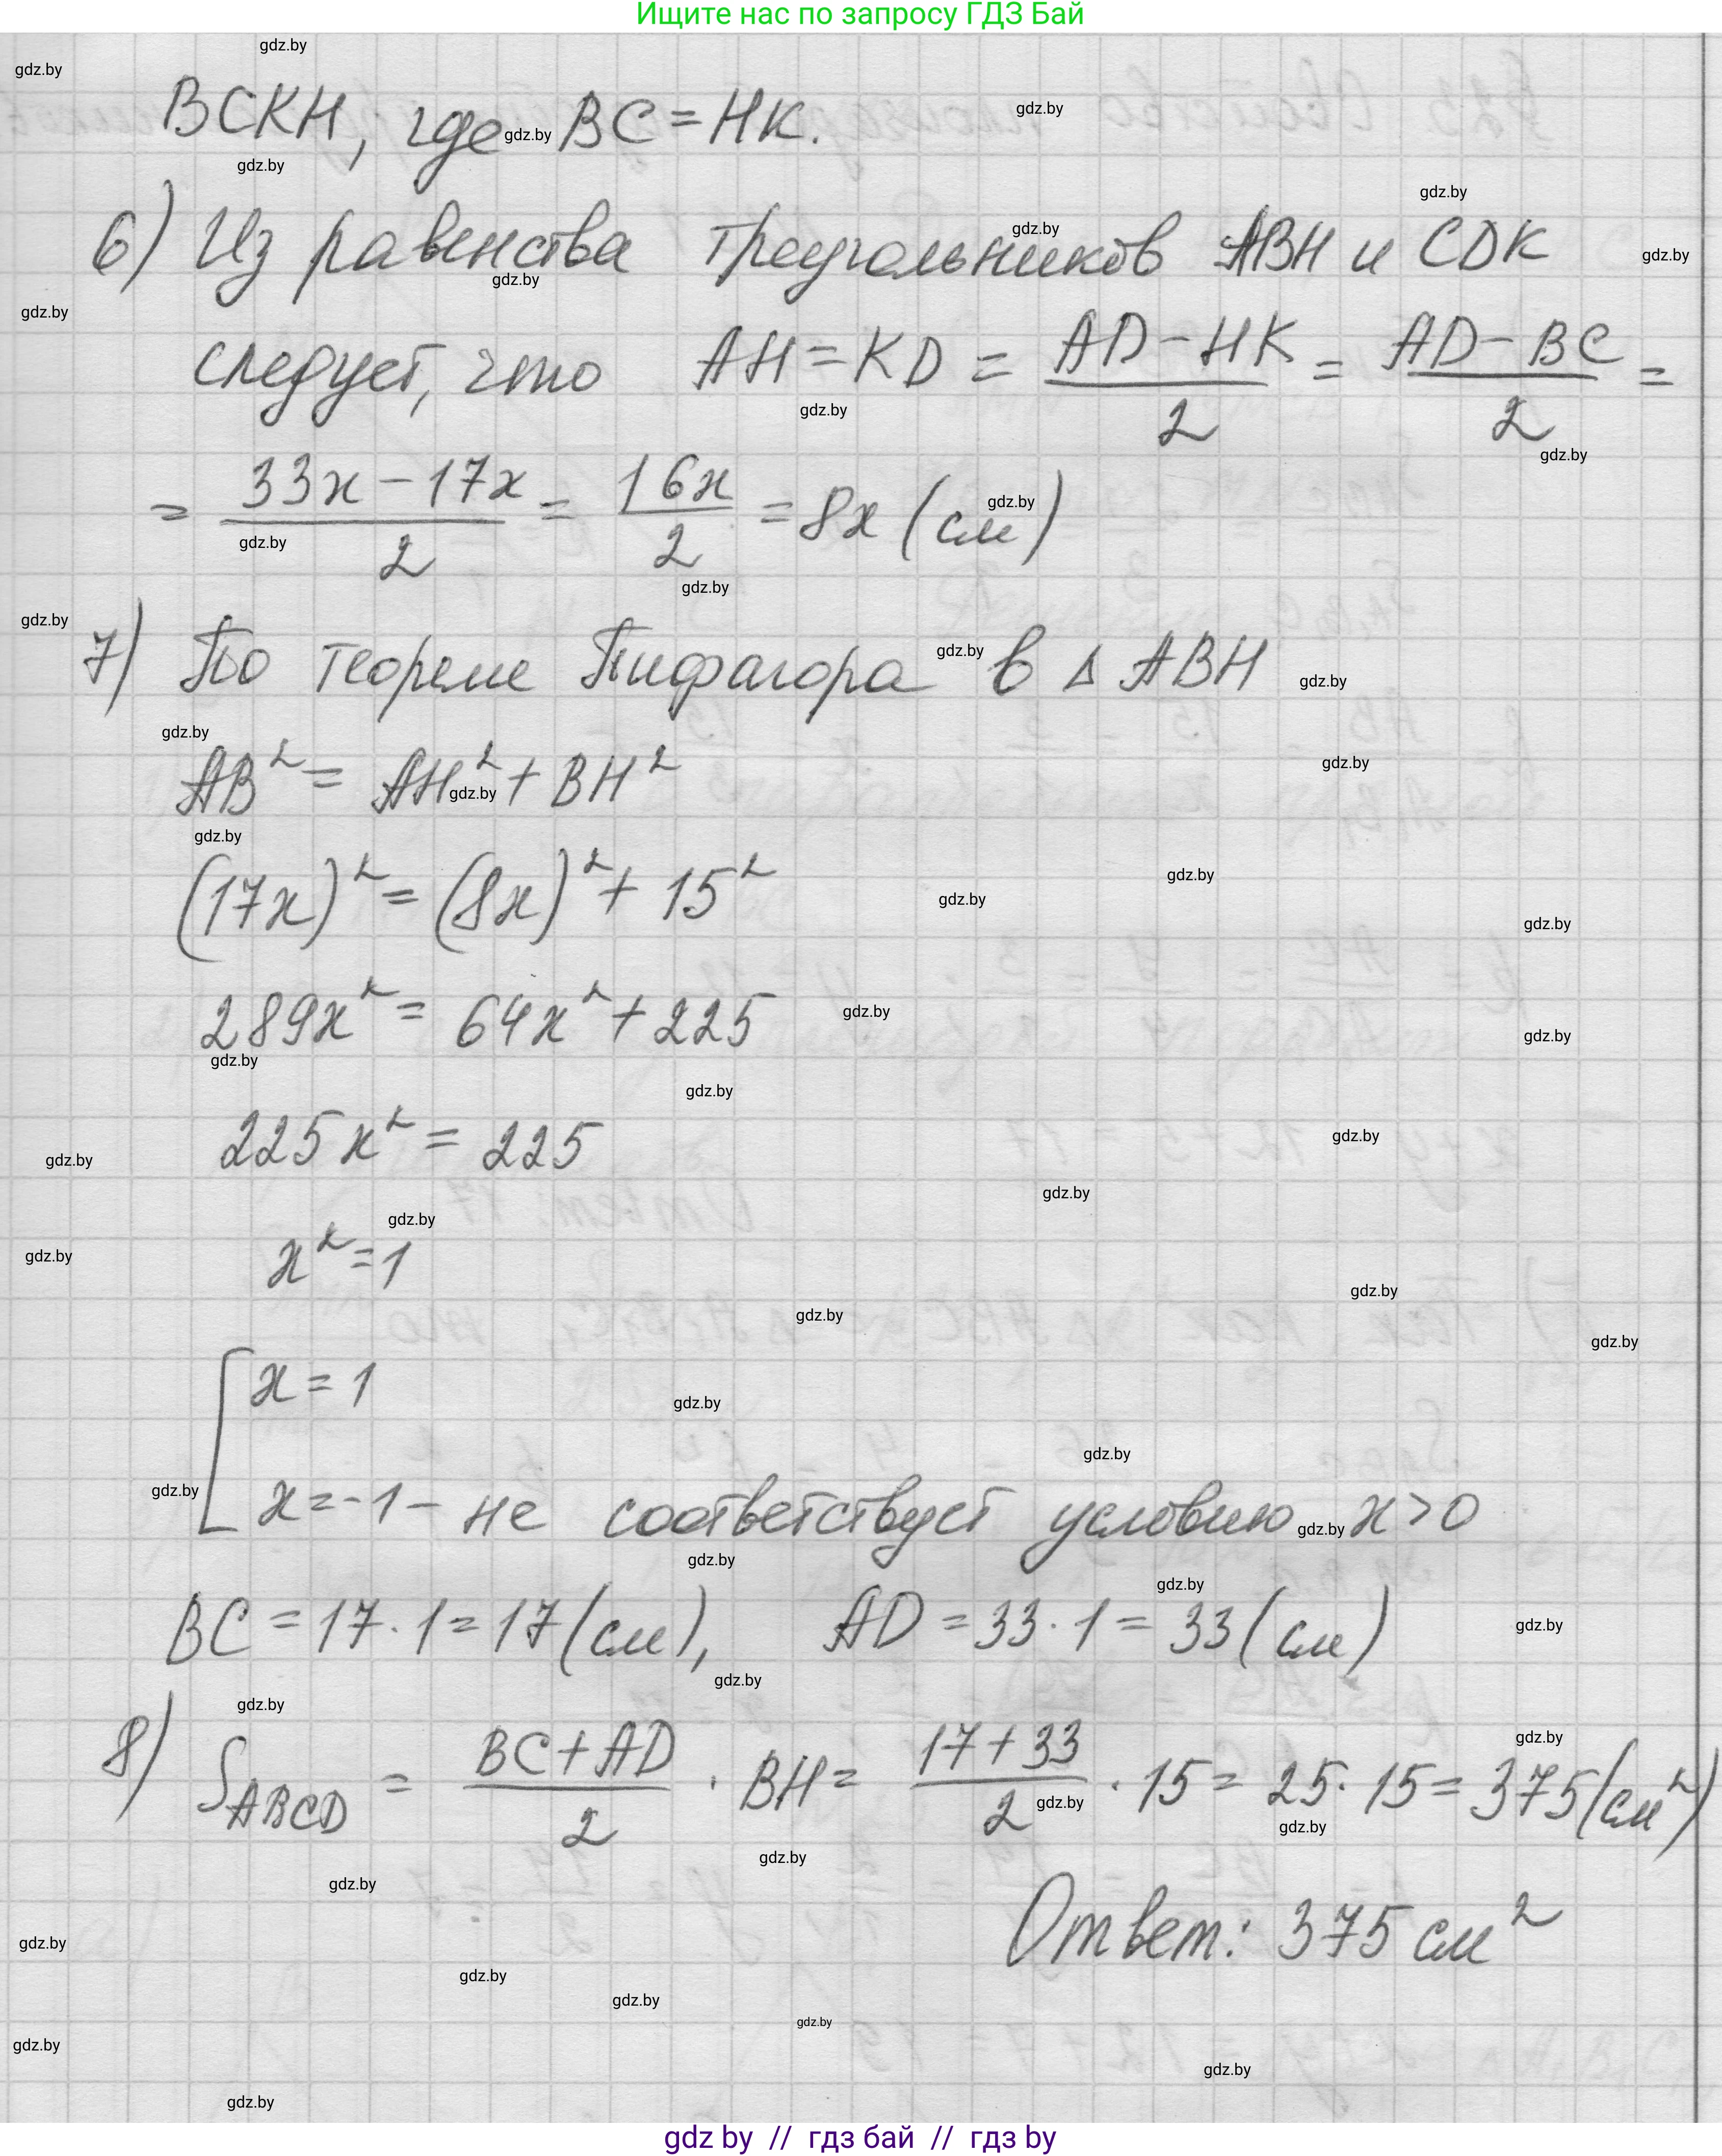 Ищите нас по запросу ГДЗ Бай
BCKH, где BC = HK.
6) Из равенства треугольников ABH и CDK
следует, что AH = KD = (AD − HK)/2 = (AD − BC)/2 =
= (33x − 17x)/2 = 16x/2 = 8x (см)
7) По теореме Пифагора в Δ ABH
AB² = AH² + BH²
(17x)² = (8x)² + 15²
289x² = 64x² + 225
225x² = 225
x² = 1
[ x = 1
x = −1 – не соответствует условию x > 0
BC = 17 · 1 = 17 (см), AD = 33 · 1 = 33 (см)
8) S_ABCD = (BC + AD)/2 · BH = (17 + 33)/2 · 15 = 25 · 15 = 375 (см²)
Ответ: 375 см²
gdz by // гдз бай // гдз by